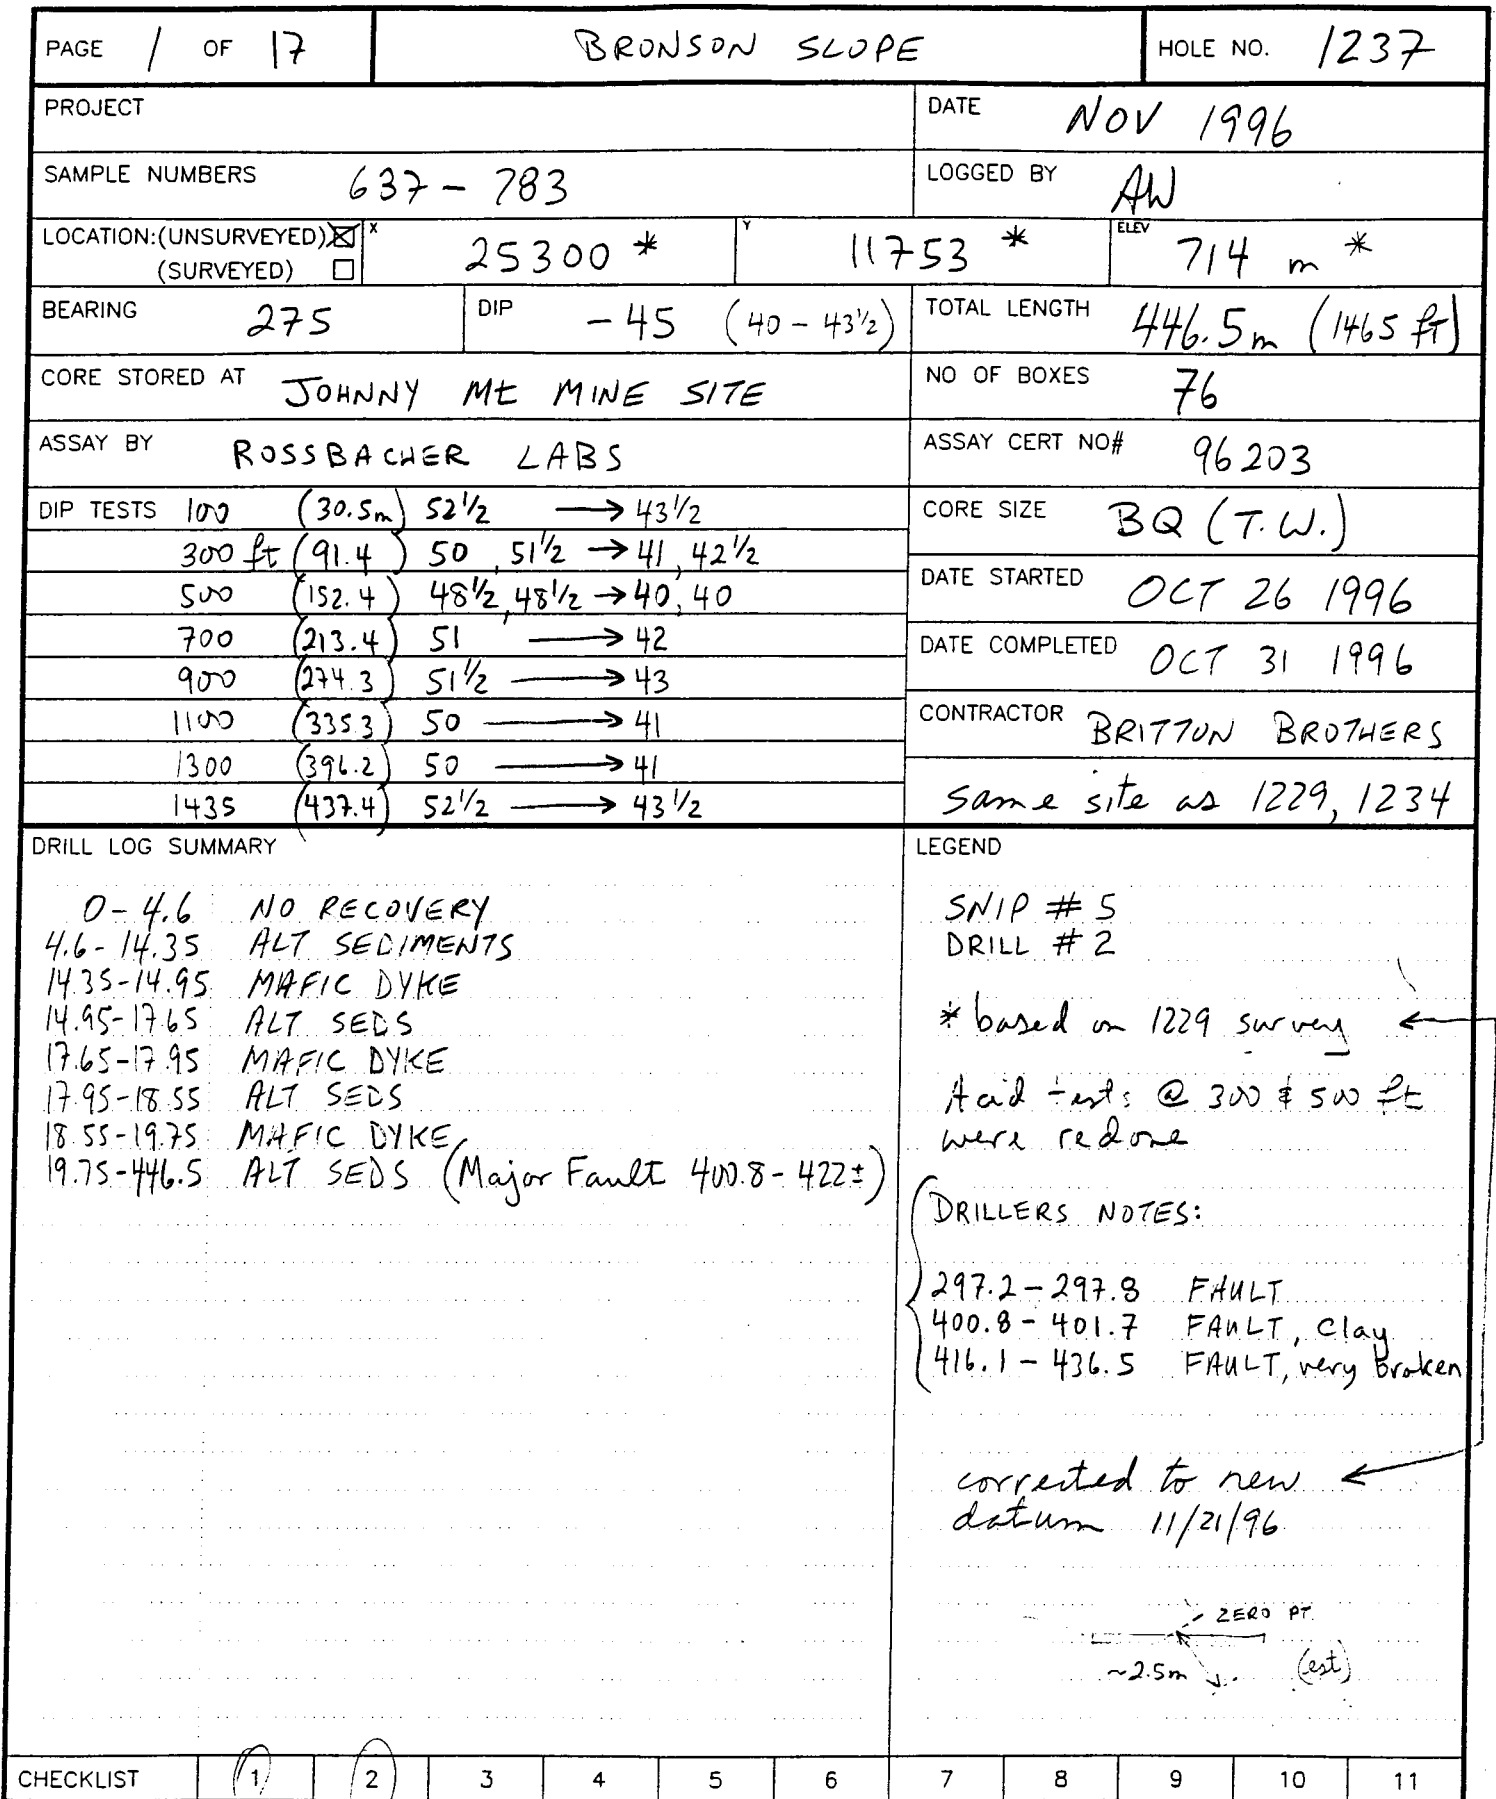 PAGE 1 OF 17 BRONSON SLOPE HOLE NO. 1237
PROJECT
DATE NOV 1996
SAMPLE NUMBERS 637 - 783
LOGGED BY AW
LOCATION:(UNSURVEYED) X 25300 * Y 11753 * ELEV 714 m *
(SURVEYED)
BEARING 275 DIP -45 (40 - 43 1/2)
TOTAL LENGTH 446.5m (1465 ft)
CORE STORED AT JOHNNY Mt MINE SITE
NO OF BOXES 76
ASSAY BY ROSSBACHER LABS
ASSAY CERT NO# 96203
DIP TESTS 100 (30.5m) 52 1/2 → 43 1/2
300 ft (91.4) 50, 51 1/2 → 41, 42 1/2
500 (152.4) 48 1/2, 48 1/2 → 40, 40
700 (213.4) 51 → 42
900 (274.3) 51 1/2 → 43
1100 (335.3) 50 → 41
1300 (396.2) 50 → 41
1435 (437.4) 52 1/2 → 43 1/2
CORE SIZE BQ (T.W.)
DATE STARTED OCT 26 1996
DATE COMPLETED OCT 31 1996
CONTRACTOR BRITTON BROTHERS
same site as 1229, 1234
DRILL LOG SUMMARY
0 - 4.6 NO RECOVERY
4.6 - 14.35 ALT SEDIMENTS
14.35-14.95 MAFIC DYKE
14.95-17.65 ALT SEDS
17.65-17.95 MAFIC DYKE
17.95-18.55 ALT SEDS
18.55-19.75 MAFIC DYKE
19.75-446.5 ALT SEDS (Major Fault 400.8 - 422±)
LEGEND
SNIP # 5
DRILL # 2
* based on 1229 survey
Acid tests @ 300 & 500 ft
were redone
DRILLERS NOTES:
297.2 - 297.8 FAULT
400.8 - 401.7 FAULT, Clay
416.1 - 436.5 FAULT, very broken
corrected to new
datum 11/21/96
ZERO PT.
~2.5m (est)
CHECKLIST 1 2 3 4 5 6 7 8 9 10 11